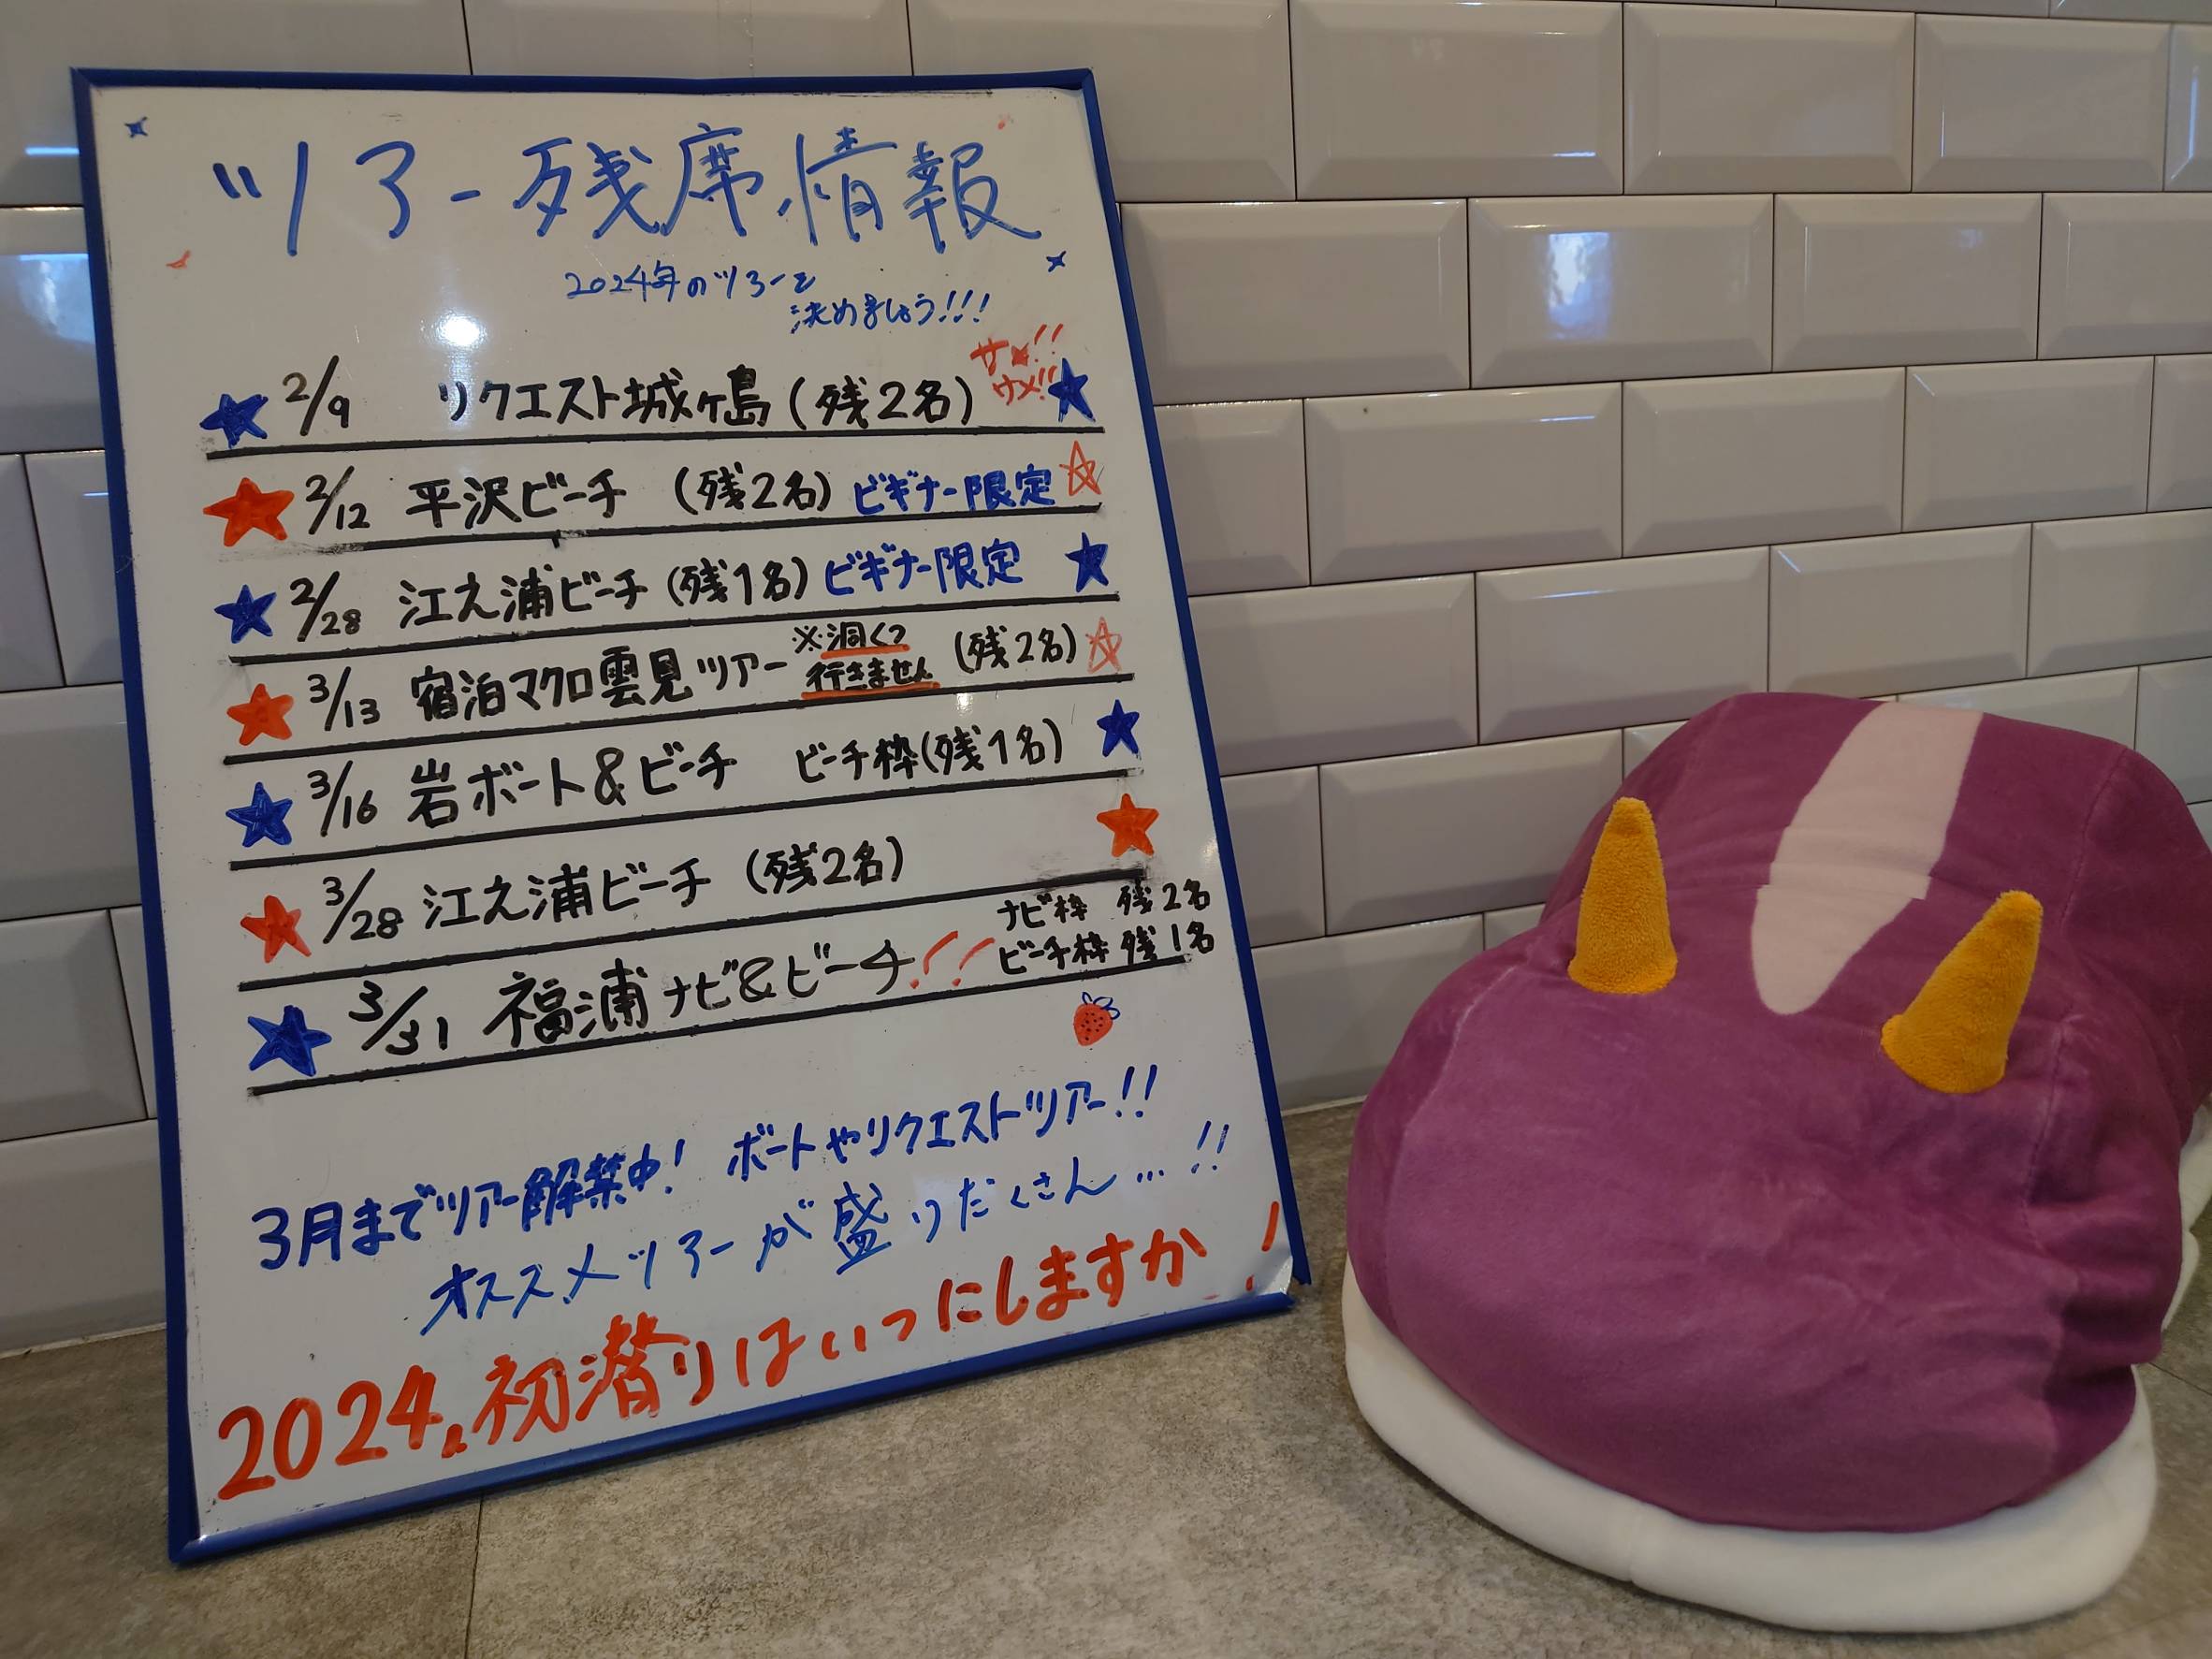 ツアー残席情報
2024年のツアーを
決めましょう!!!
2/9 リクエスト城ヶ島(残2名) サメ!!
サメ!!
2/12 平沢ビーチ (残2名) ビギナー限定
2/28 江之浦ビーチ(残1名) ビギナー限定
3/13 宿泊マクロ雲見ツアー ※洞くつ
行きません (残2名)
3/16 岩ボート&ビーチ ビーチ枠(残1名)
3/28 江之浦ビーチ (残2名)
3/31 福浦ナビ&ビーチ!! ナビ枠 残2名
ビーチ枠 残1名
3月までツアー解禁中! ボートやリクエストツアー!!
オススメツアーが盛りだくさん…!!
2024,初潜りはいつにしますか!